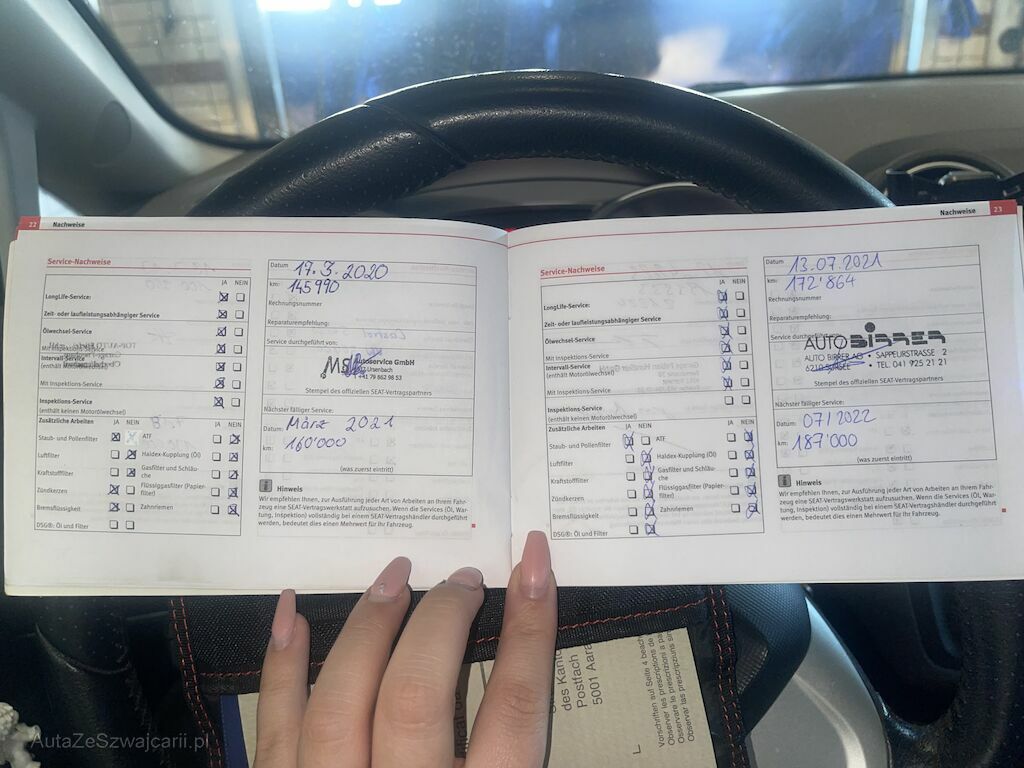 22 Nachweise
Service-Nachweise
JA NEIN
LongLife-Service:
Zeit- oder laufleistungsabhängiger Service
Ölwechsel-Service:
Mit Inspektions-Service
Intervall-Service
(enthält Motorölwechsel)
Mit Inspektions-Service
Inspektions-Service
(enthält keinen Motorölwechsel)
Zusätzliche Arbeiten
JA NEIN JA NEIN
Staub- und Pollenfilter ATF
Luftfilter Haldex-Kupplung (Öl)
Kraftstofffilter Gasfilter und Schläu-
che
Zündkerzen Flüssiggasfilter (Papier-
filter)
Bremsflüssigkeit Zahnriemen
DSG®: Öl und Filter
Datum 17.3.2020
km: 145990
Rechnungsnummer
Reparaturempfehlung:
Service durchgeführt von:
Autoservice GmbH
Ursenbach
+41 79 862 98 53
Stempel des offiziellen SEAT-Vertragspartners
Nächster fälliger Service:
Datum: März 2021
km: 160'000
(was zuerst eintritt)
Hinweis
Wir empfehlen Ihnen, zur Ausführung jeder Art von Arbeiten an Ihrem Fahr-
zeug eine SEAT-Vertragswerkstatt aufzusuchen. Wenn die Services (Öl, War-
tung, Inspektion) vollständig bei einem SEAT-Vertragshändler durchgeführt
werden, bedeutet dies einen Mehrwert für Ihr Fahrzeug.
Nachweise 23
Service-Nachweise
JA NEIN
LongLife-Service:
Zeit- oder laufleistungsabhängiger Service
Ölwechsel-Service:
Mit Inspektions-Service
Intervall-Service
(enthält Motorölwechsel)
Mit Inspektions-Service
Inspektions-Service
(enthält keinen Motorölwechsel)
Zusätzliche Arbeiten
JA NEIN JA NEIN
Staub- und Pollenfilter ATF
Luftfilter Haldex-Kupplung (Öl)
Kraftstofffilter Gasfilter und Schläu-
che
Zündkerzen Flüssiggasfilter (Papier-
filter)
Bremsflüssigkeit Zahnriemen
DSG®: Öl und Filter
Datum: 13.07.2021
km: 172'864
Rechnungsnummer
Reparaturempfehlung:
Service durchgeführt von:
AUTO BIRRER
AUTO BIRRER AG • SAPPEURSTRASSE 2
6210 SURSEE • TEL. 041 925 21 21
Stempel des offiziellen SEAT-Vertragspartners
Nächster fälliger Service:
Datum: 07/2022
km: 187'000
(was zuerst eintritt)
Hinweis
Wir empfehlen Ihnen, zur Ausführung jeder Art von Arbeiten an Ihrem Fahr-
zeug eine SEAT-Vertragswerkstatt aufzusuchen. Wenn die Services (Öl, War-
tung, Inspektion) vollständig bei einem SEAT-Vertragshändler durchgeführt
werden, bedeutet dies einen Mehrwert für Ihr Fahrzeug.
des Kan
Postfach
5001 Aara
Vorschriften auf Seite 4 beach
Observer les prescriptions à pa
Osservare le prescrizioni a
Observar las prescripziuns sin
AutaZeSzwajcarii.pl